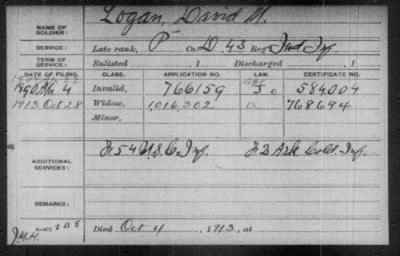 Logan, David M.
NAME OF SOLDIER:
SERVICE: Late rank, P Co. D, 43 Reg't Ind Inf.
TERM OF SERVICE: Enlisted , 1 Discharged , 1
DATE OF FILING. CLASS. APPLICATION NO. LAW. CERTIFICATE NO.
1890 4 Invalid, 766159 J o 584004
1913 Oct 28 Widow, 1,016,302 a 768694
Minor,
ADDITIONAL SERVICES: F 54 U.S.C Inf. F 2 Ark Cold. Inf.
REMARKS:
Died Oct 4 , 1913, at
J.M.H.